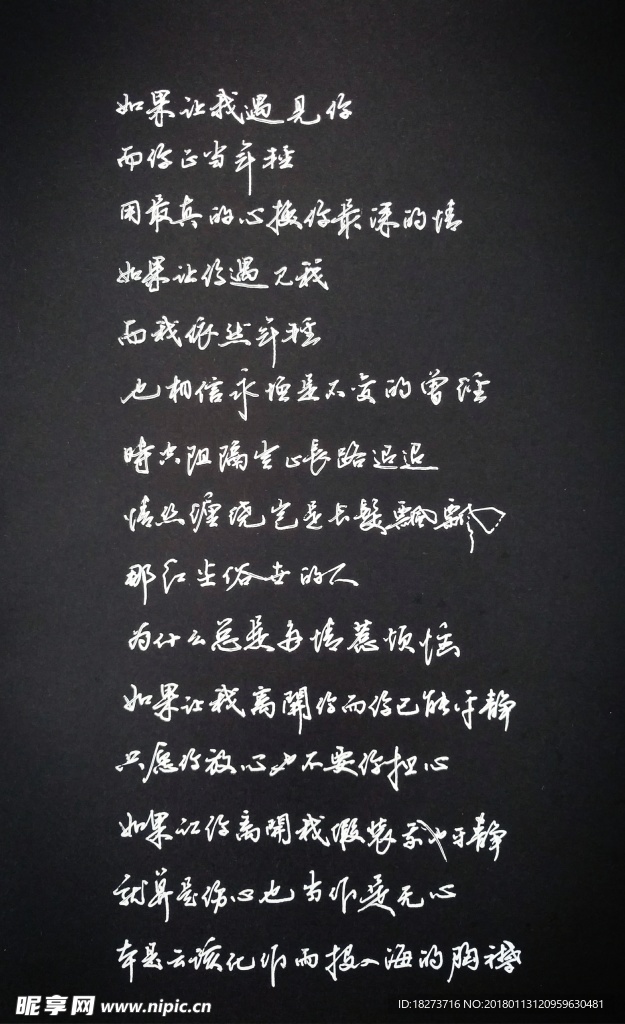 如果让我遇见你
而你正当年轻
用最真的心换你最深的情
如果让你遇见我
而我依然年轻
也相信永恒是不变的曾经
時光阻隔坐心長路迢迢
情丝缠绕岂是长髮飄飄
那红尘俗世的人
为什么总是多情惹烦恼
如果让我离開你而你已能平静
只愿你放心也不要你担心
如果让你离開我假装系也平静
就算是伤心也当作是无心
本是云该化作雨投入海的胸襟
昵享网 www.nipic.cn
ID:18273716 NO:20180113120959630481